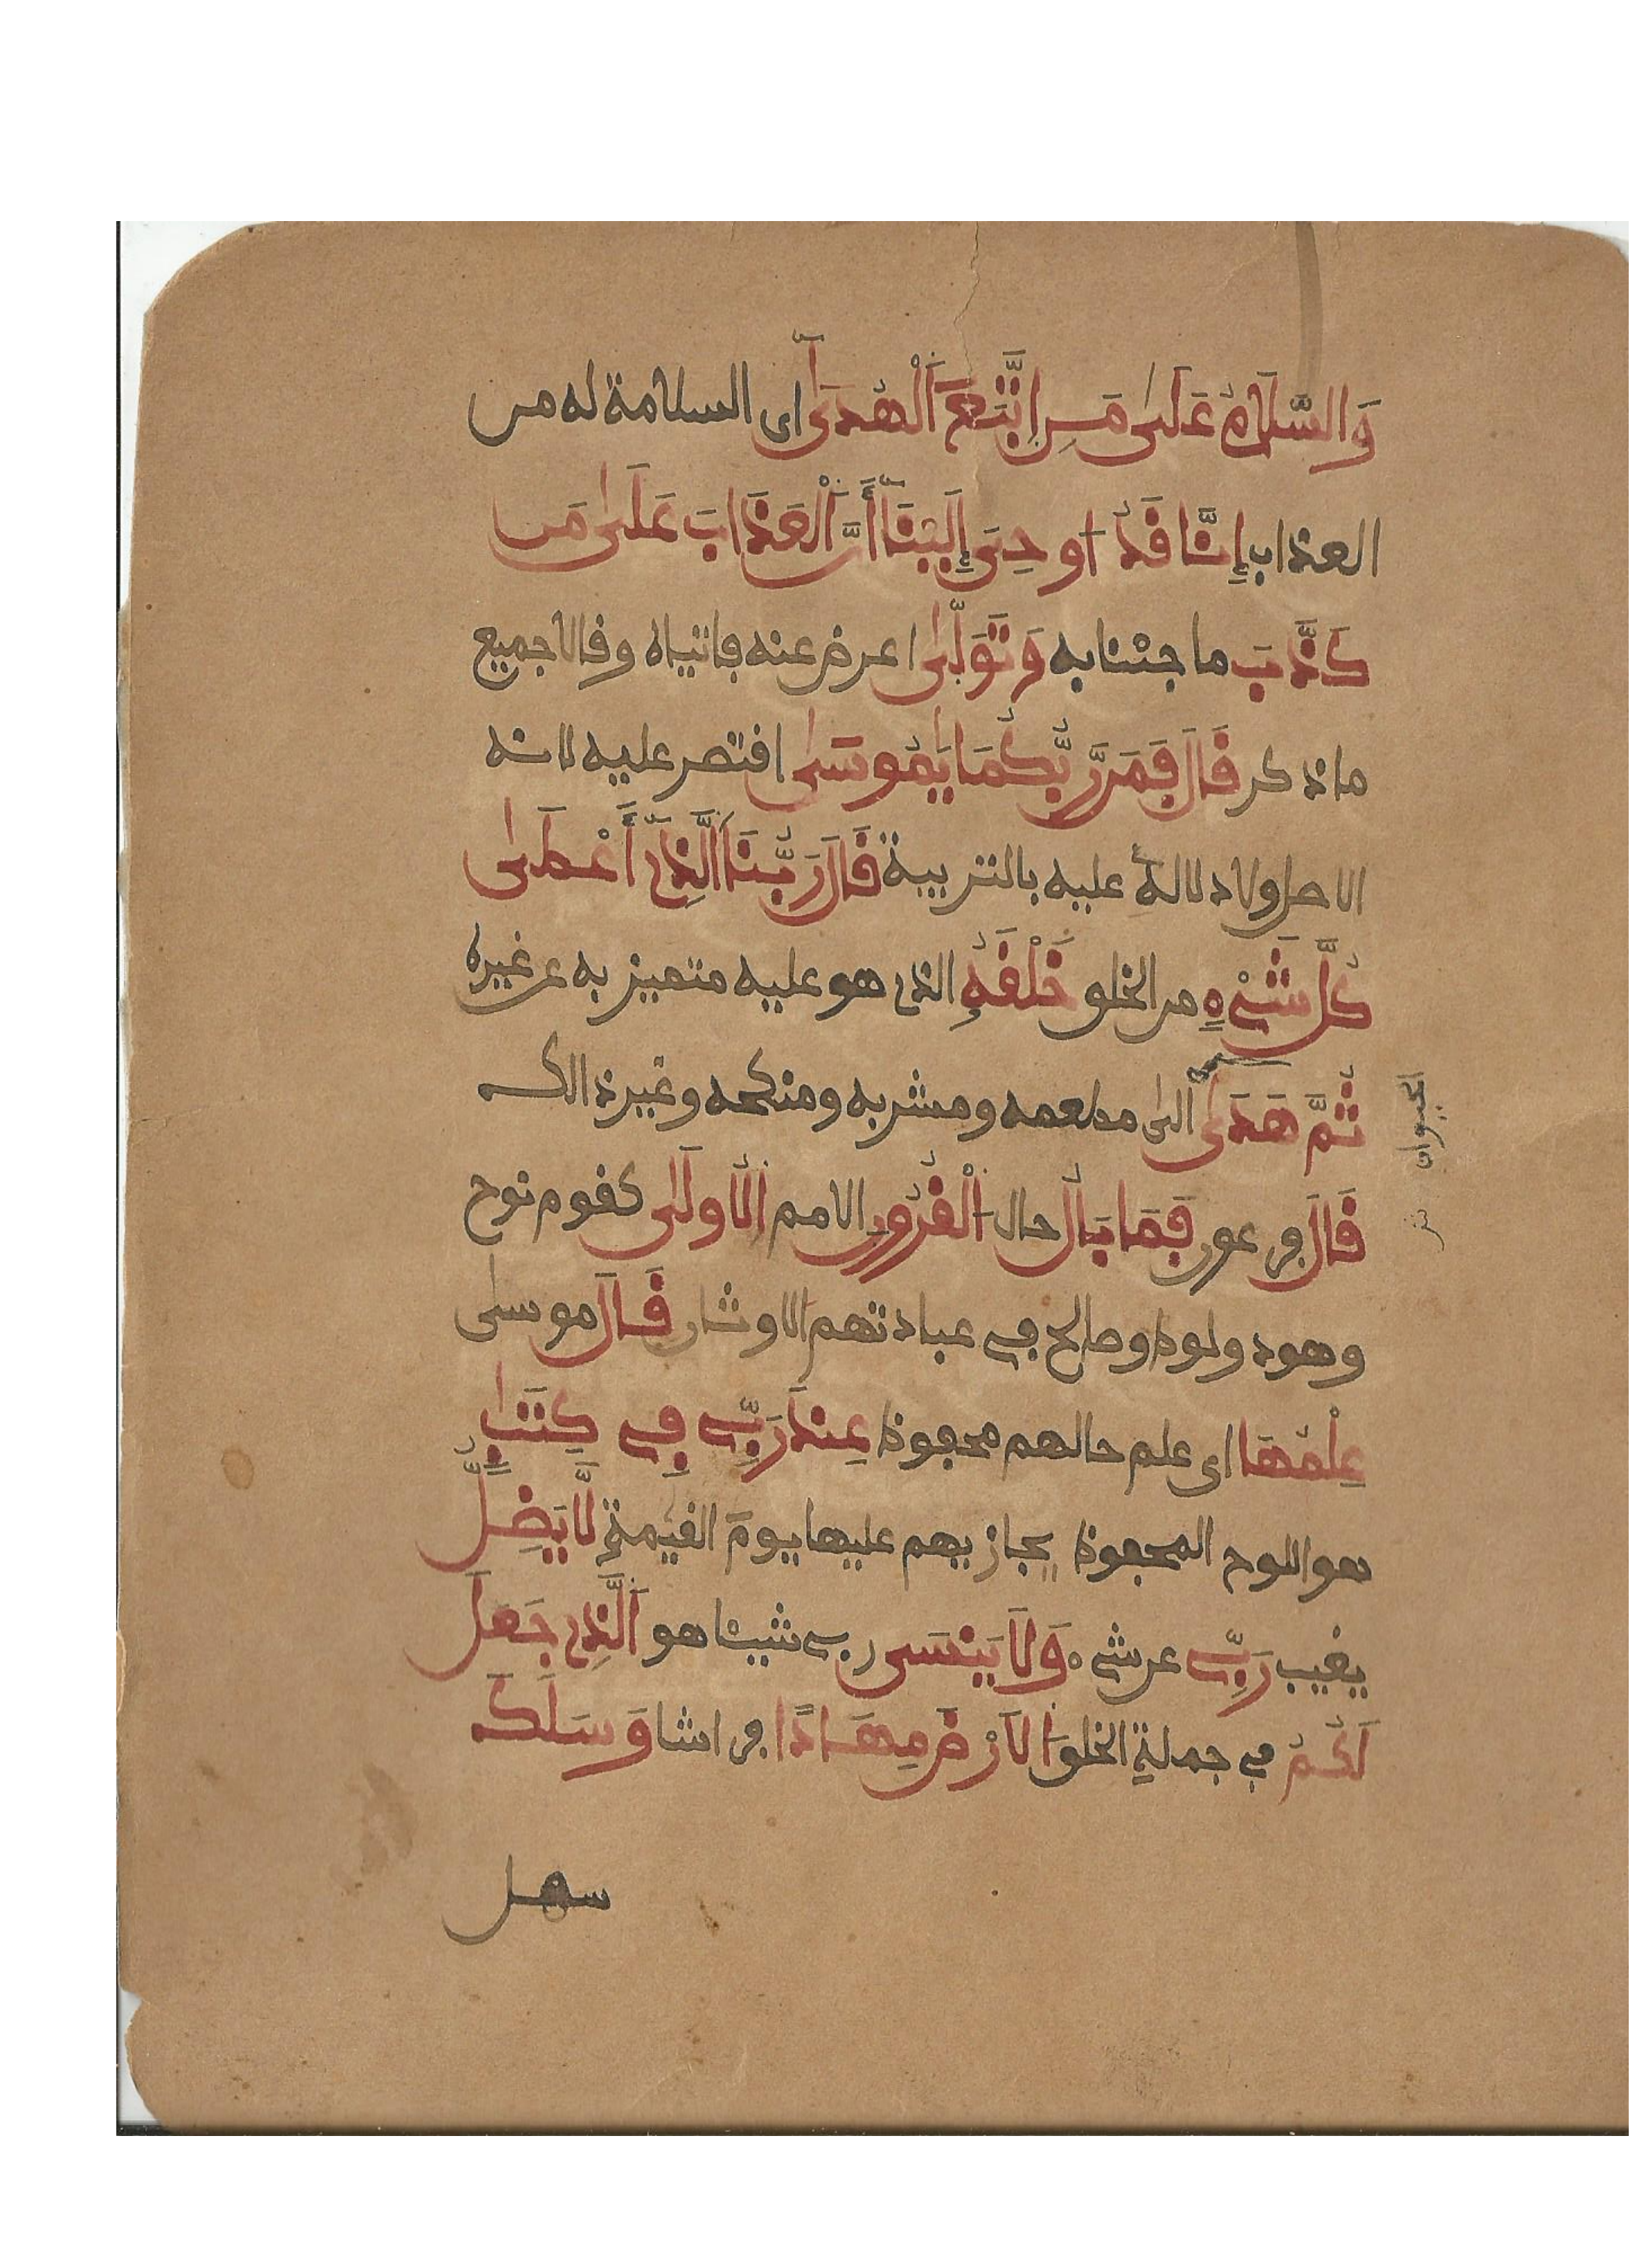 وَالسَّلَامُ عَلَىٰ مَنِ اِتَّبَعَ اَ۬لْهُدَىٰٓ اى السلامة له من
العذاب إِنَّا قَدُ ا۟وحِىَ إِلَيْنَآ أَنَّ اَ۬لْعَذَابَ عَلَىٰ مَن
كَذَّبَ ما جئنا به وَتَوَلَّىٰ اعرض عنه فاتياه وقالا جميع
ما ذكر قَالَ فَمَن رَّبُّكُمَا يَٰمُوسَىٰ اقتصر عليه لانه
الاصل ولادلالة عليه بالتربية قَالَ رَبُّنَا اَ۬لَّذِىٓ أَعْطَىٰ
كُلَّ شَىْءٍ من الخلق خَلْقَهُۥ الذى هو عليه متميز به عن غيره
ثُمَّ هَدَىٰ الى مطعمه ومشربه ومنكحه وغير ذالك
الحيوان
قَالَ فرعون فَمَا بَالُ حال اَ۬لْقُرُونِ الامم اِ۬لُاولَىٰ كقوم نوح
وهود ولوط وصالح فى عبادتهم الاوثان قَالَ موسىٰ
عِلْمُهَا اى علم حالهم محفوظ عِندَ رَبِّى فِى كِتَٰبٍ
هو اللوح المحفوظ يجازيهم عليها يومَ القيٰمةِ لَّا يَضِلُّ
يغيب رَبِّى عن شىء وَلَا يَنسَى ربى شيئا هو اَ۬لَّذِى جَعَلَ
لَكُمُ فى جملة الخلق اُ۬لَارْضَ مِهَٰدًا فراشا وَسَلَكَ
سهل